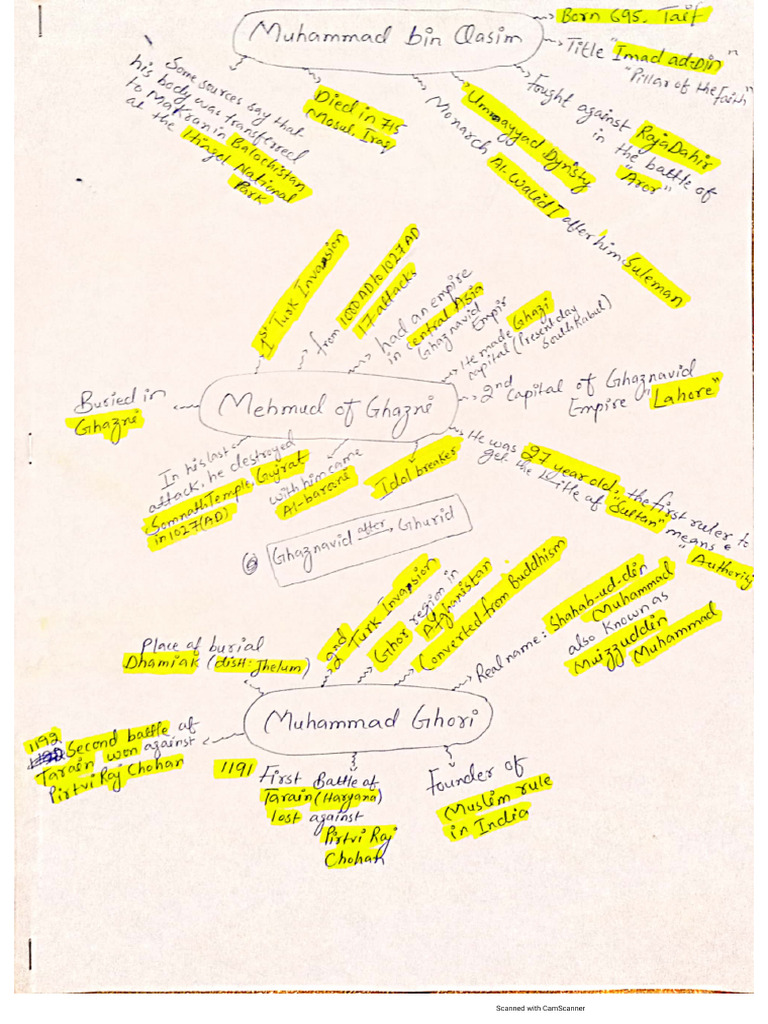 Muhammad bin Qasim
Born 695, Taif
Title "Imad ad-Din"
"Pillar of the Faith"
Fought against Raja Dahir
in the battle of
"Aror"
Ummayyad Dynisty
Monarch Al-Waleed I after him Suleman
Died in 715
Mosul, Iraq
Some sources say that
his body was transferred
to Makran in Balochistan
at the Hingol National
Park
Mehmud of Ghazni
1st Turk Invasion
from 1000 AD to 1027 AD
17 attacks
had an empire
in central Asia
Ghaznavid
Empir
He made Ghazi
capital (Present day
South Kabul)
2nd Capital of Ghaznavid
Empire "Lahore"
He was 27 year old, the first ruler to
get the tittle of "Sultan" means
"Authority
Idol breaker
with him came
Al-barani
In his last
attack, he destroyed
Somnath Temple, Gujrat
in 1027(AD)
Buried in
Ghazni
Ghaznavid after Ghurid
Muhammad Ghori
2nd Turk Invasion
Ghor region in
Afghanistan
Converted from Buddhism
Real name: Shahab-ud-din
Muhammad
also known as
Muizzuddin
Muhammad
Place of burial
Dhamiak (dist: Jhelum)
1192
Second battle of
Tarain won against
Pirtvi Raj Chohan
1191 First Battle of
Tarain (Haryana)
lost against
Pirtvi Raj
Chohan
Founder of
Muslim rule
in India
Scanned with CamScanner